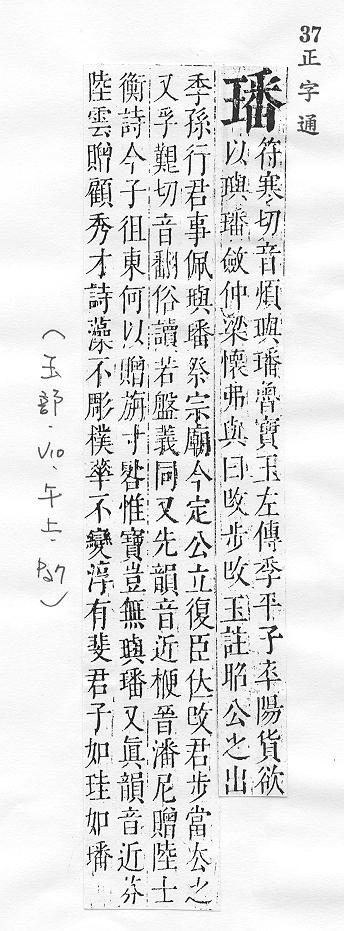 37正字通
璠
符寒切音煩璵璠魯寶玉左傳季平子卒陽貨欲
以璵璠斂仲梁懷弗與曰改步改玉註昭公之出
季孫行君事佩璵璠祭宗廟今定公立復臣位改君步當去之
又孚艱切音翻俗讀若盤義同又先韻音近梗晉潘尼贈陸士
衡詩今子徂東何以贈旃寸晷惟寶豈無璵璠又眞韻音近芬
陸雲贈顧秀才詩藻不彫樸華不變淳有斐君子如珪如璠
(玉部.V10.午上.P37)